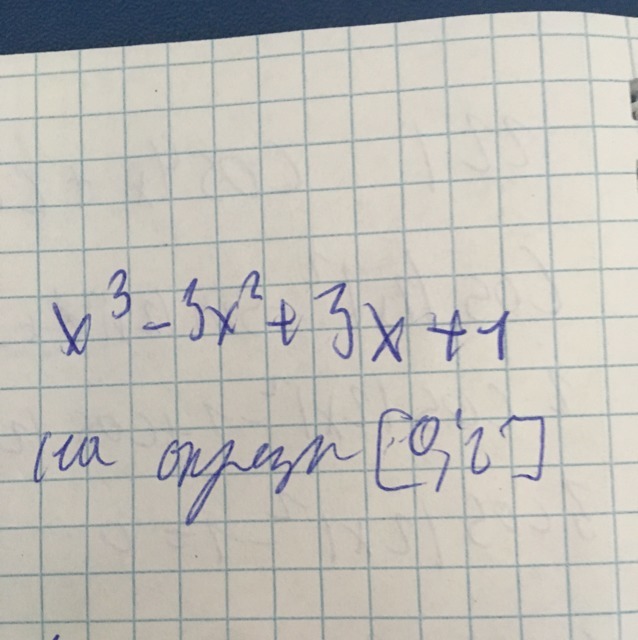 x³ - 3x² + 3x + 1
на отрезк [0; 2]